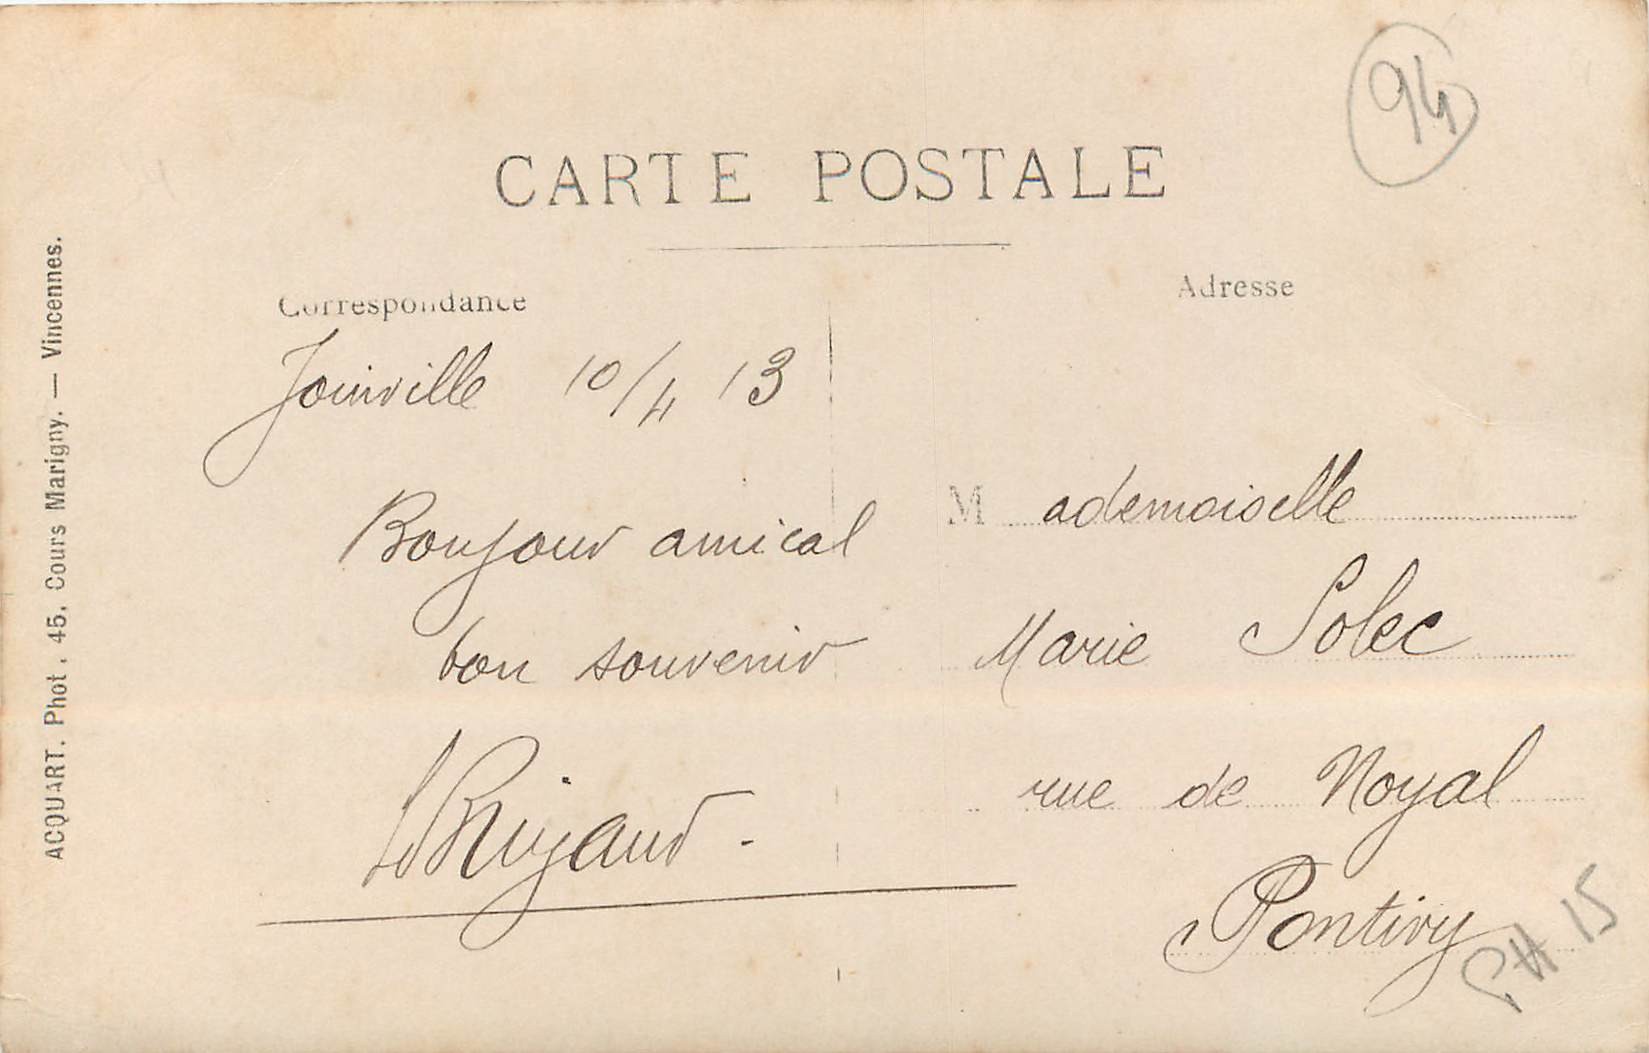 94
CARTE POSTALE
Correspondance
Adresse
ACQUART. Phot. 45, Cours Marigny. — Vincennes.
Joinville 10/4 13
Bonjour amical
bon souvenir
Mademoiselle
Marie Solec
rue de Noyal
Pontivy
PH 15